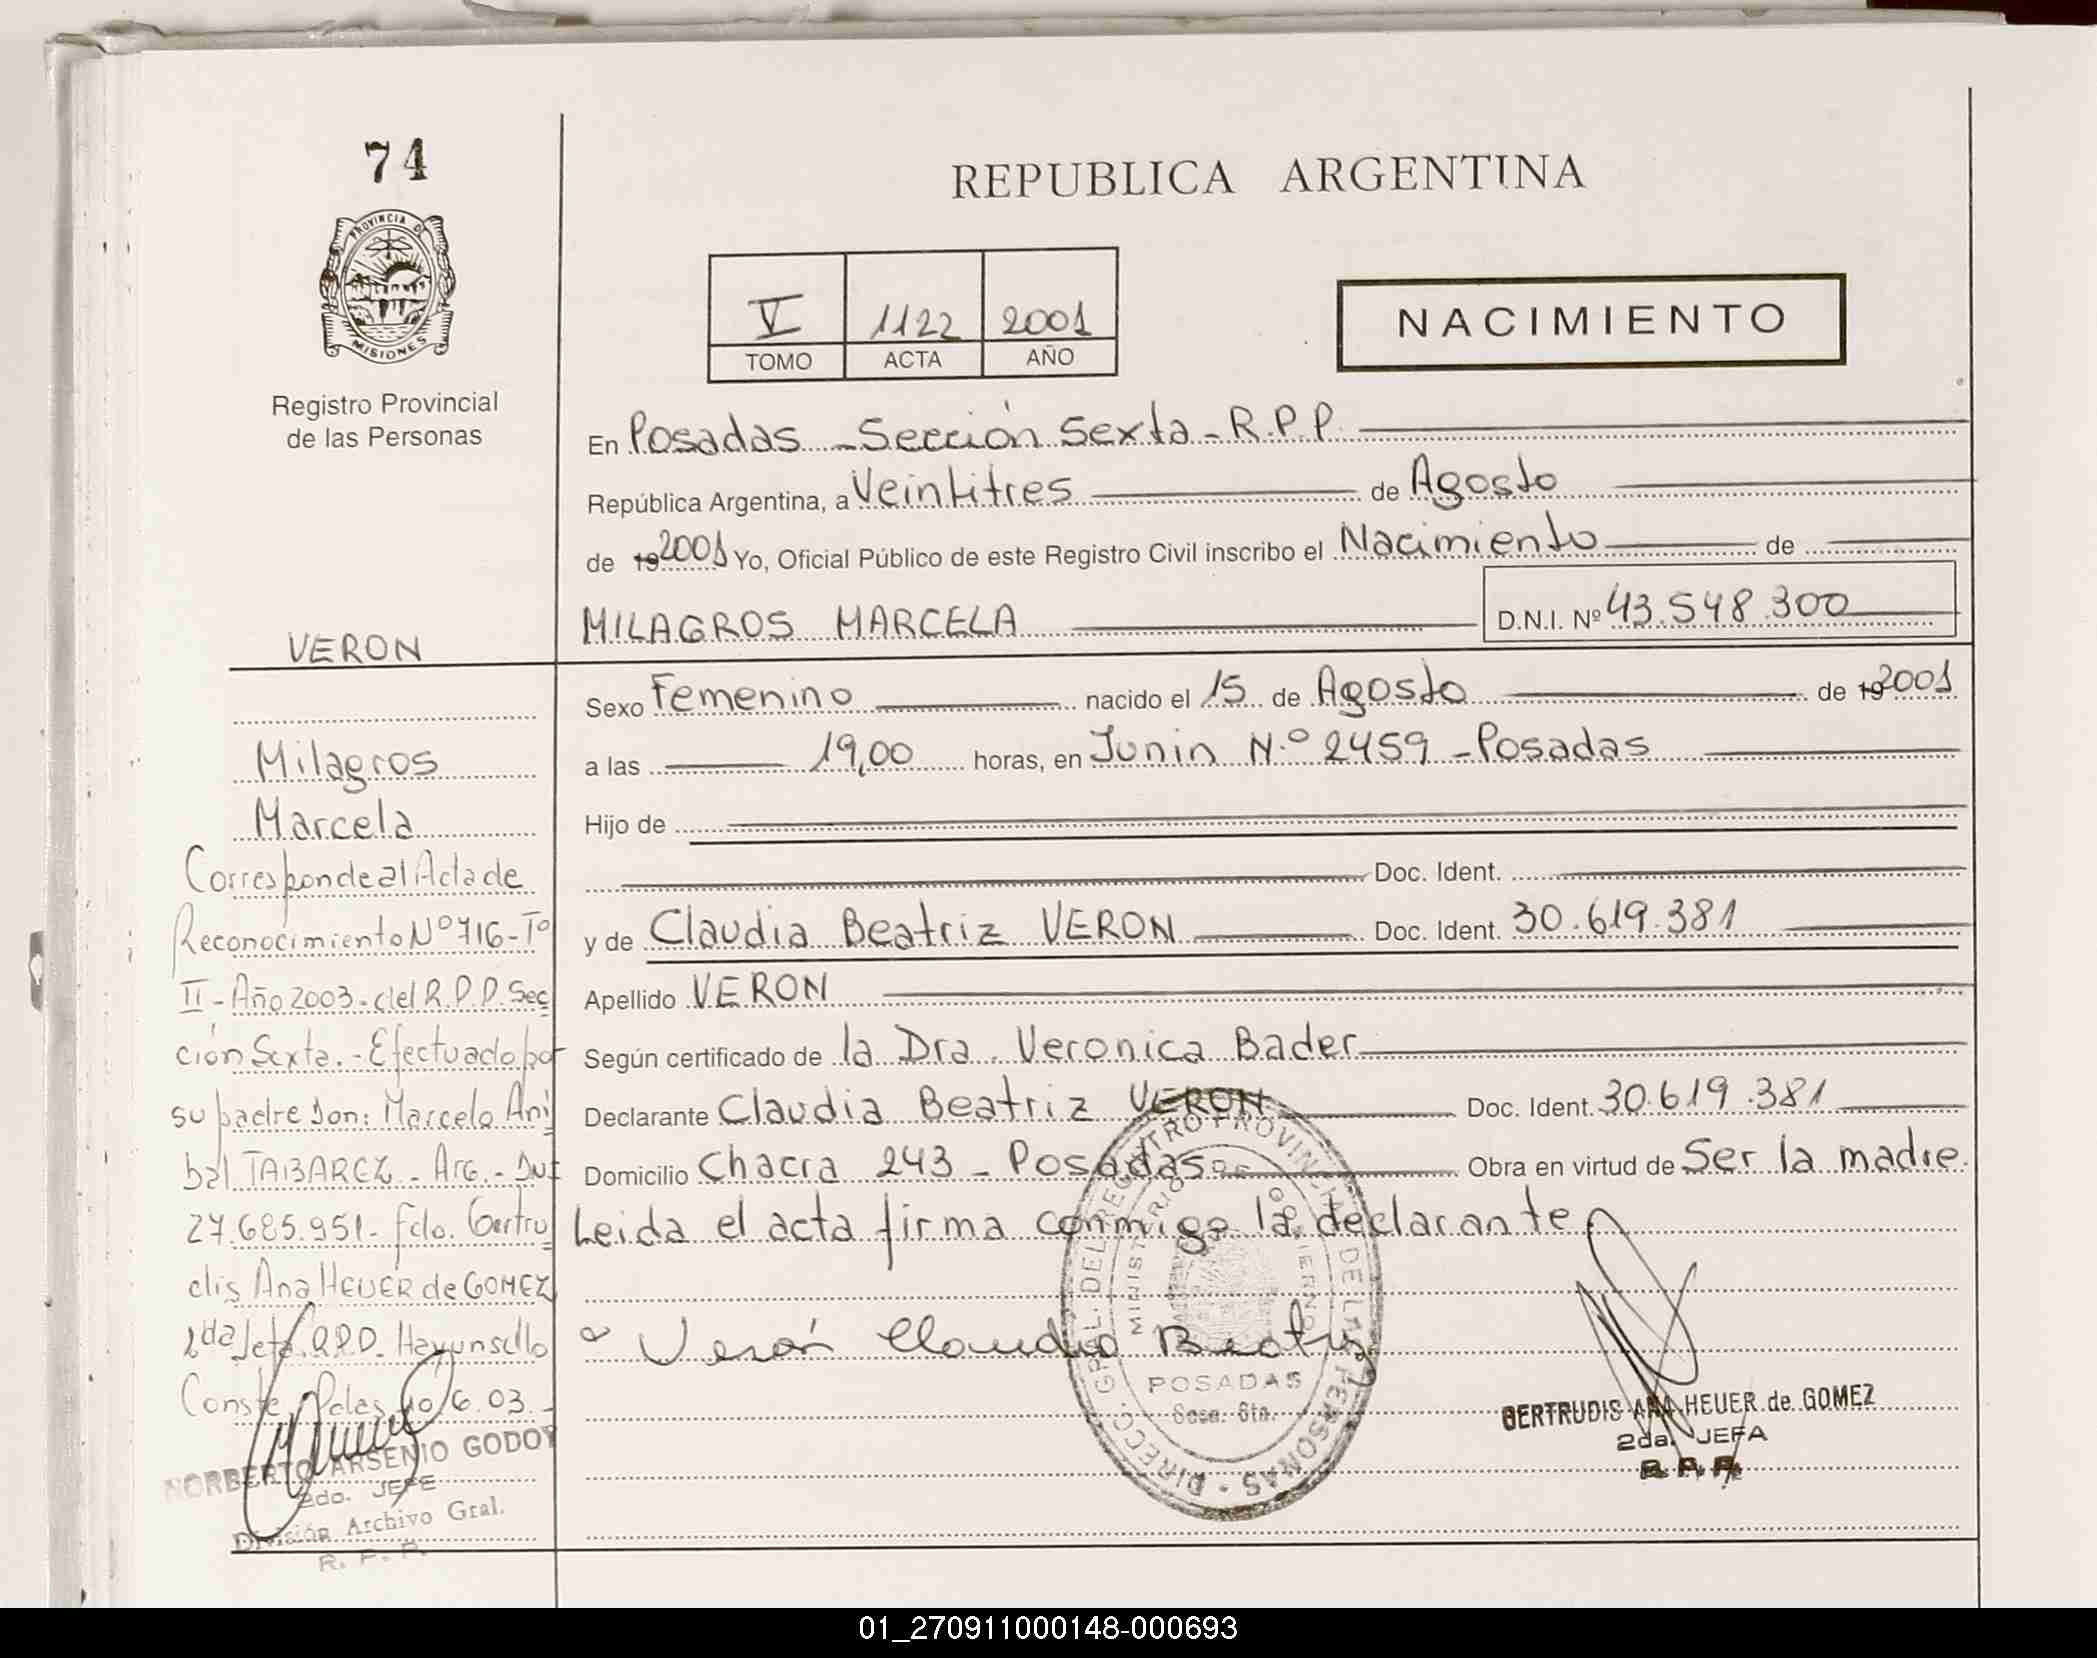 74
PROVINCIA DE
MISIONES
Registro Provincial
de las Personas
VERON
Milagros
Marcela
Corresponde al Acta de
Reconocimiento Nº 716 - Tº
II - Año 2003 - del R.P.P. Sec
ción Sexta. - Efectuado por
su padre Don: Marcelo Ani
bal TABAREZ - Arg. - DNI
27.685.951 - fdo. Gertru
dis Ana HEUER de GOMEZ
2da Jefa R.P.P. Hay un sello
Conste, Pdas 10/6.03.-
NORBERTO ARSENIO GODOY
2do. JEFE
División Archivo Gral.
R. P. P.
REPUBLICA ARGENTINA
V 1122 2001
TOMO ACTA AÑO
NACIMIENTO
En Posadas - Sección Sexta - R.P.P.
República Argentina, a Veintitres de Agosto
de 19 2001 Yo, Oficial Público de este Registro Civil inscribo el Nacimiento de
MILAGROS MARCELA D.N.I. Nº 43.548.300
Sexo Femenino nacido el 15 de Agosto de 19 2001
a las 19,00 horas, en Junin N.º 2459 - Posadas
Hijo de
Doc. Ident.
y de Claudia Beatriz VERON Doc. Ident. 30.619.381
Apellido VERON
Según certificado de la Dra. Veronica Bader
Declarante Claudia Beatriz VERON Doc. Ident. 30.619.381
Domicilio Chacra 243 - Posadas Obra en virtud de Ser la madre.
Leida el acta firma conmigo la declarante
Verón Claudia Beatriz
DIRECC. GRAL. DEL REGISTRO PROVINCIAL DE LAS PERSONAS
MINISTERIO DE GOBIERNO
POSADAS
Secc. 6ta.
GERTRUDIS ANA HEUER de GOMEZ
2da. JEFA
R. P. P.
01_270911000148-000693